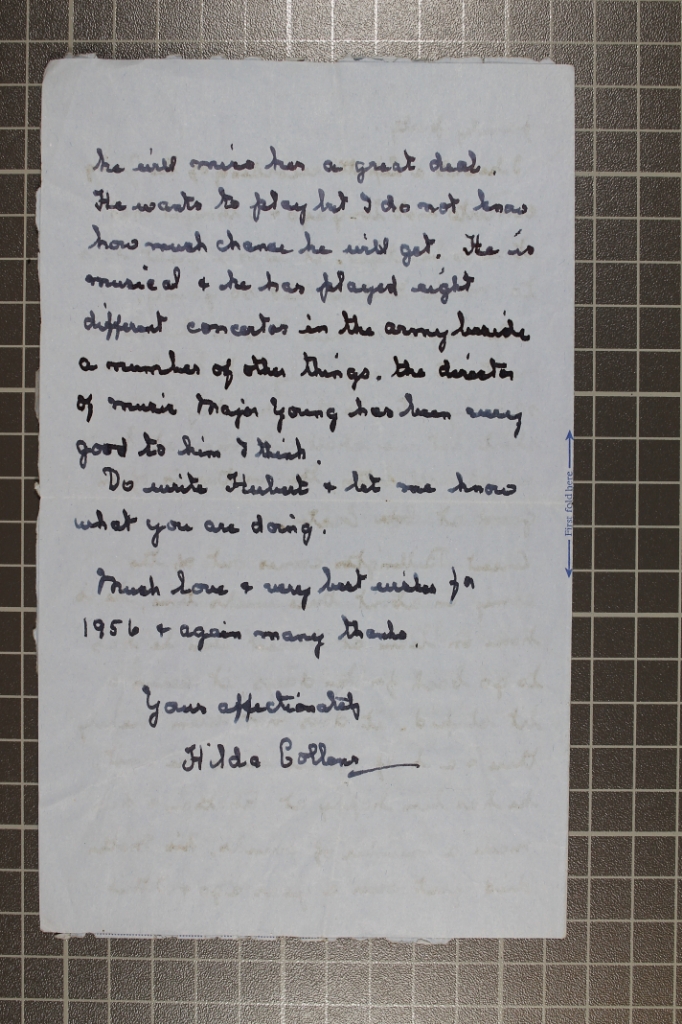 he will miss her a great deal.
He wants to play but I do not know
how much chance he will get. He is
musical & he has played eight
different concertos in the army beside
a number of other things. the director
of music Major Young has been very
good to him I think.
Do write Hubert & let me know
what you are doing.
Much love & very best wishes for
1956 & again many thanks.
Yours affectionately
Hilda Collens
First fold here